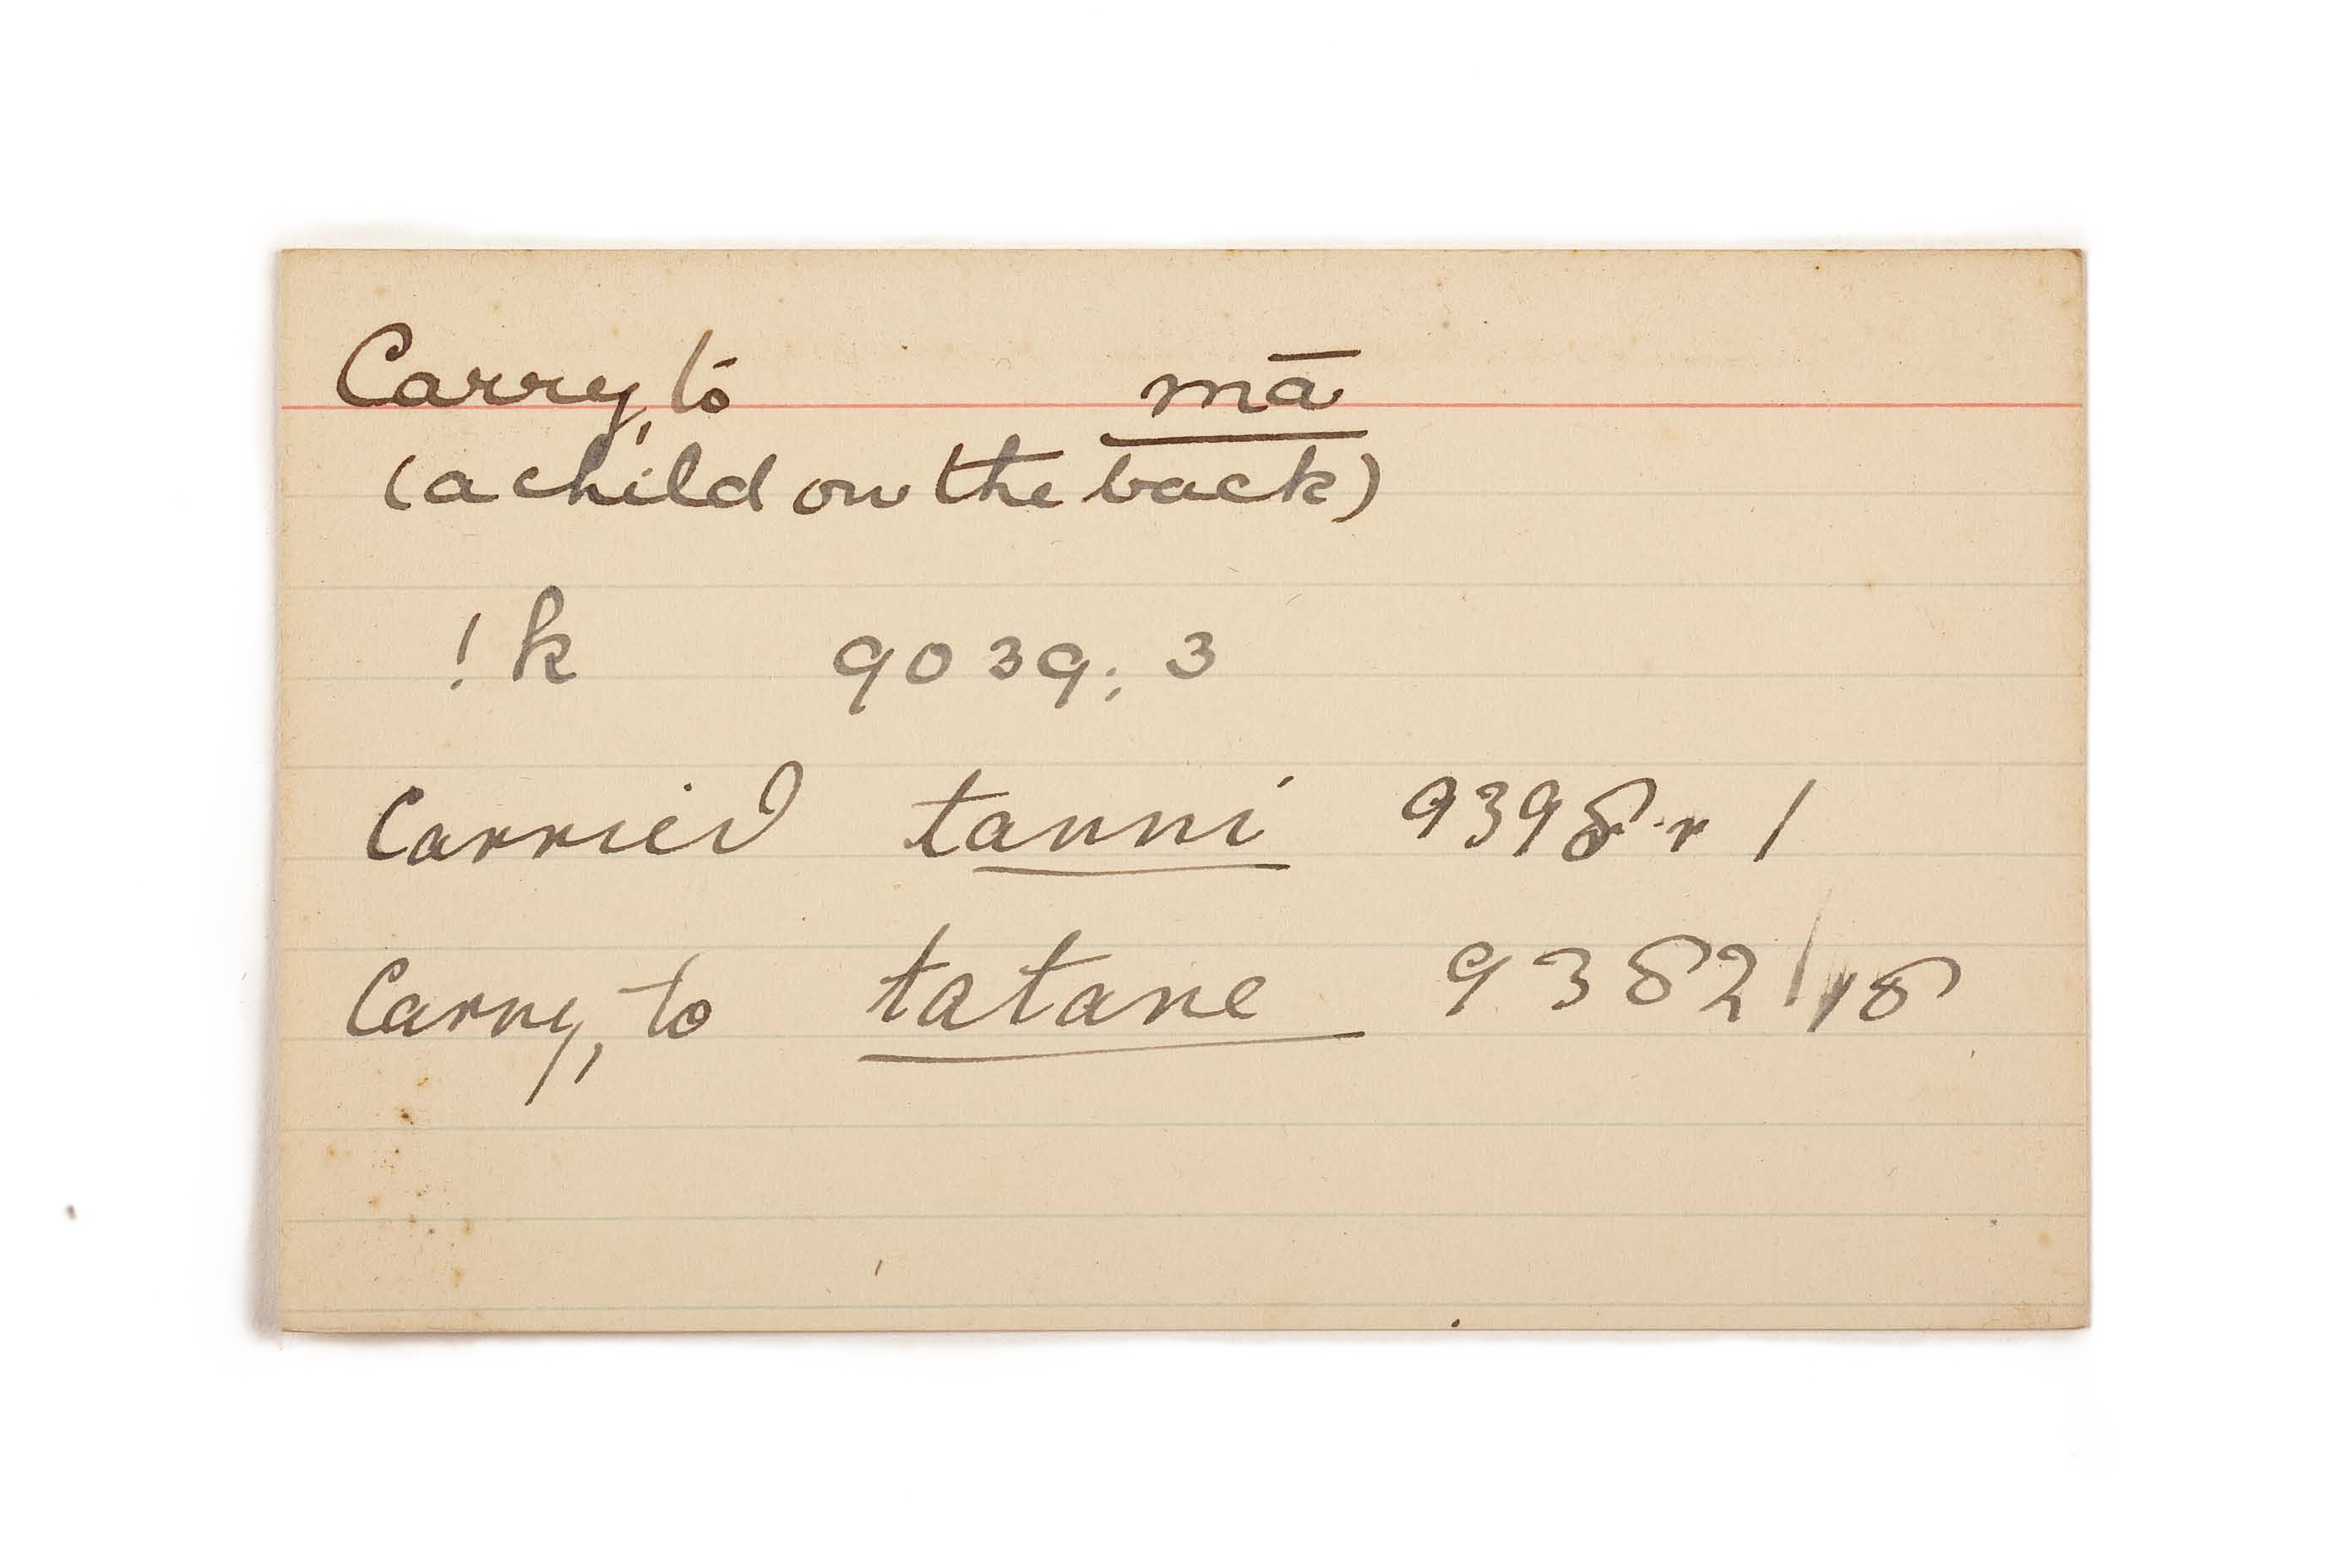 Carry, to mā
(a child on the back)
!k 9039; 3
Carried tanni 9398 r 1
Carry, to tatane 9382